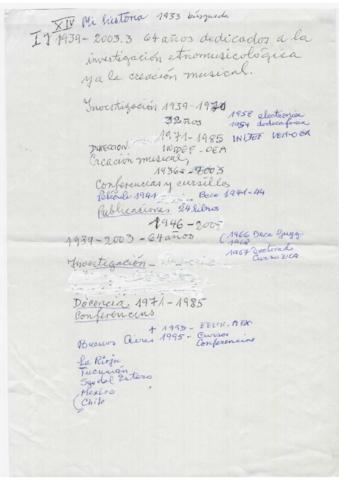 XIV Mi historia 1933 búsqueda
I) 1939-2003.3 64 años dedicados a la
investigación etnomusicológica
y a la creación musical.
Investigación 1939-1971
32 años
1958 electrónica
1954 dodecafonía
1971-1985 INIDEF VEN-OEA
DIRECCION INIDEF-OEA
Creación musical,
1936-2003
Conferencias y cursillos
1941 Beca 1941-44
Publicaciones 24 libros
1946-2003
1939-2003-64 años
1966 Beca Gugg.
1968
1967 Doctorado
Curso UCA
Investigación
Docencia 1971-1985
Conferencias
+ 1993- EEUU. MEX
Buenos Aires 1995- Cursos
Conferencias
La Rioja
Tucumán
Sgo del Estero
Mexico
Chile